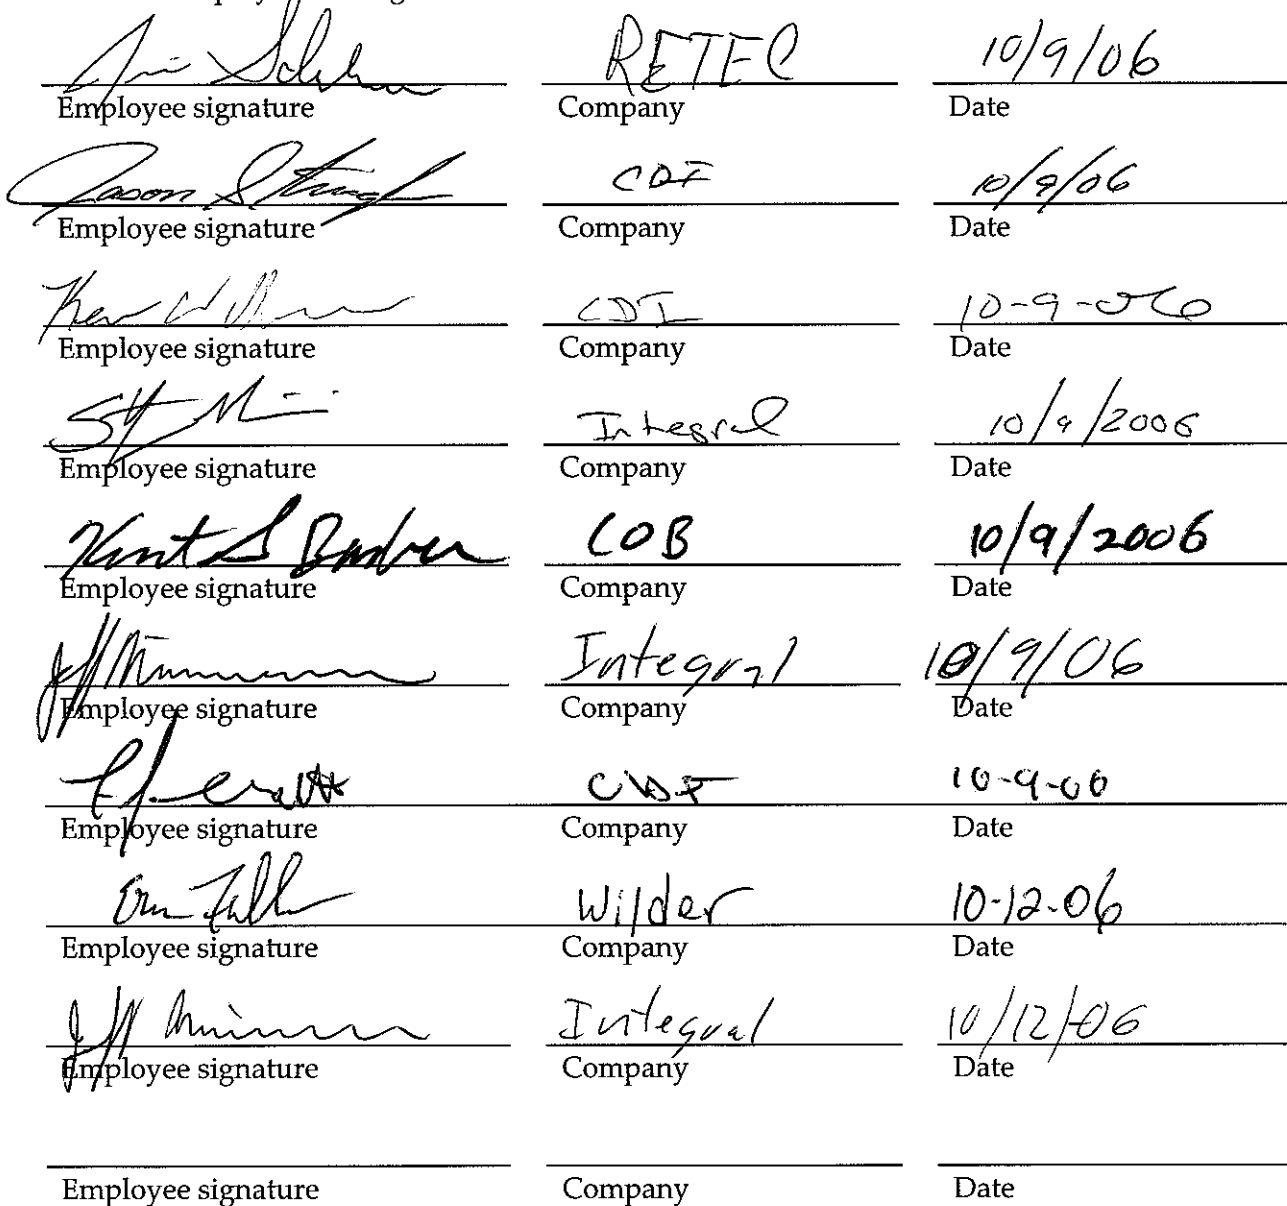 RETEC 10/9/06
Employee signature Company Date
Jason CDI 10/9/06
Employee signature Company Date
CDI 10-9-06
Employee signature Company Date
Integral 10/9/2006
Employee signature Company Date
Kent S Barber COB 10/9/2006
Employee signature Company Date
Jeff Integral 10/9/06
Employee signature Company Date
CDI 10-9-06
Employee signature Company Date
Wilder 10-12-06
Employee signature Company Date
Jeff Integral 10/12/06
Employee signature Company Date
Employee signature Company Date